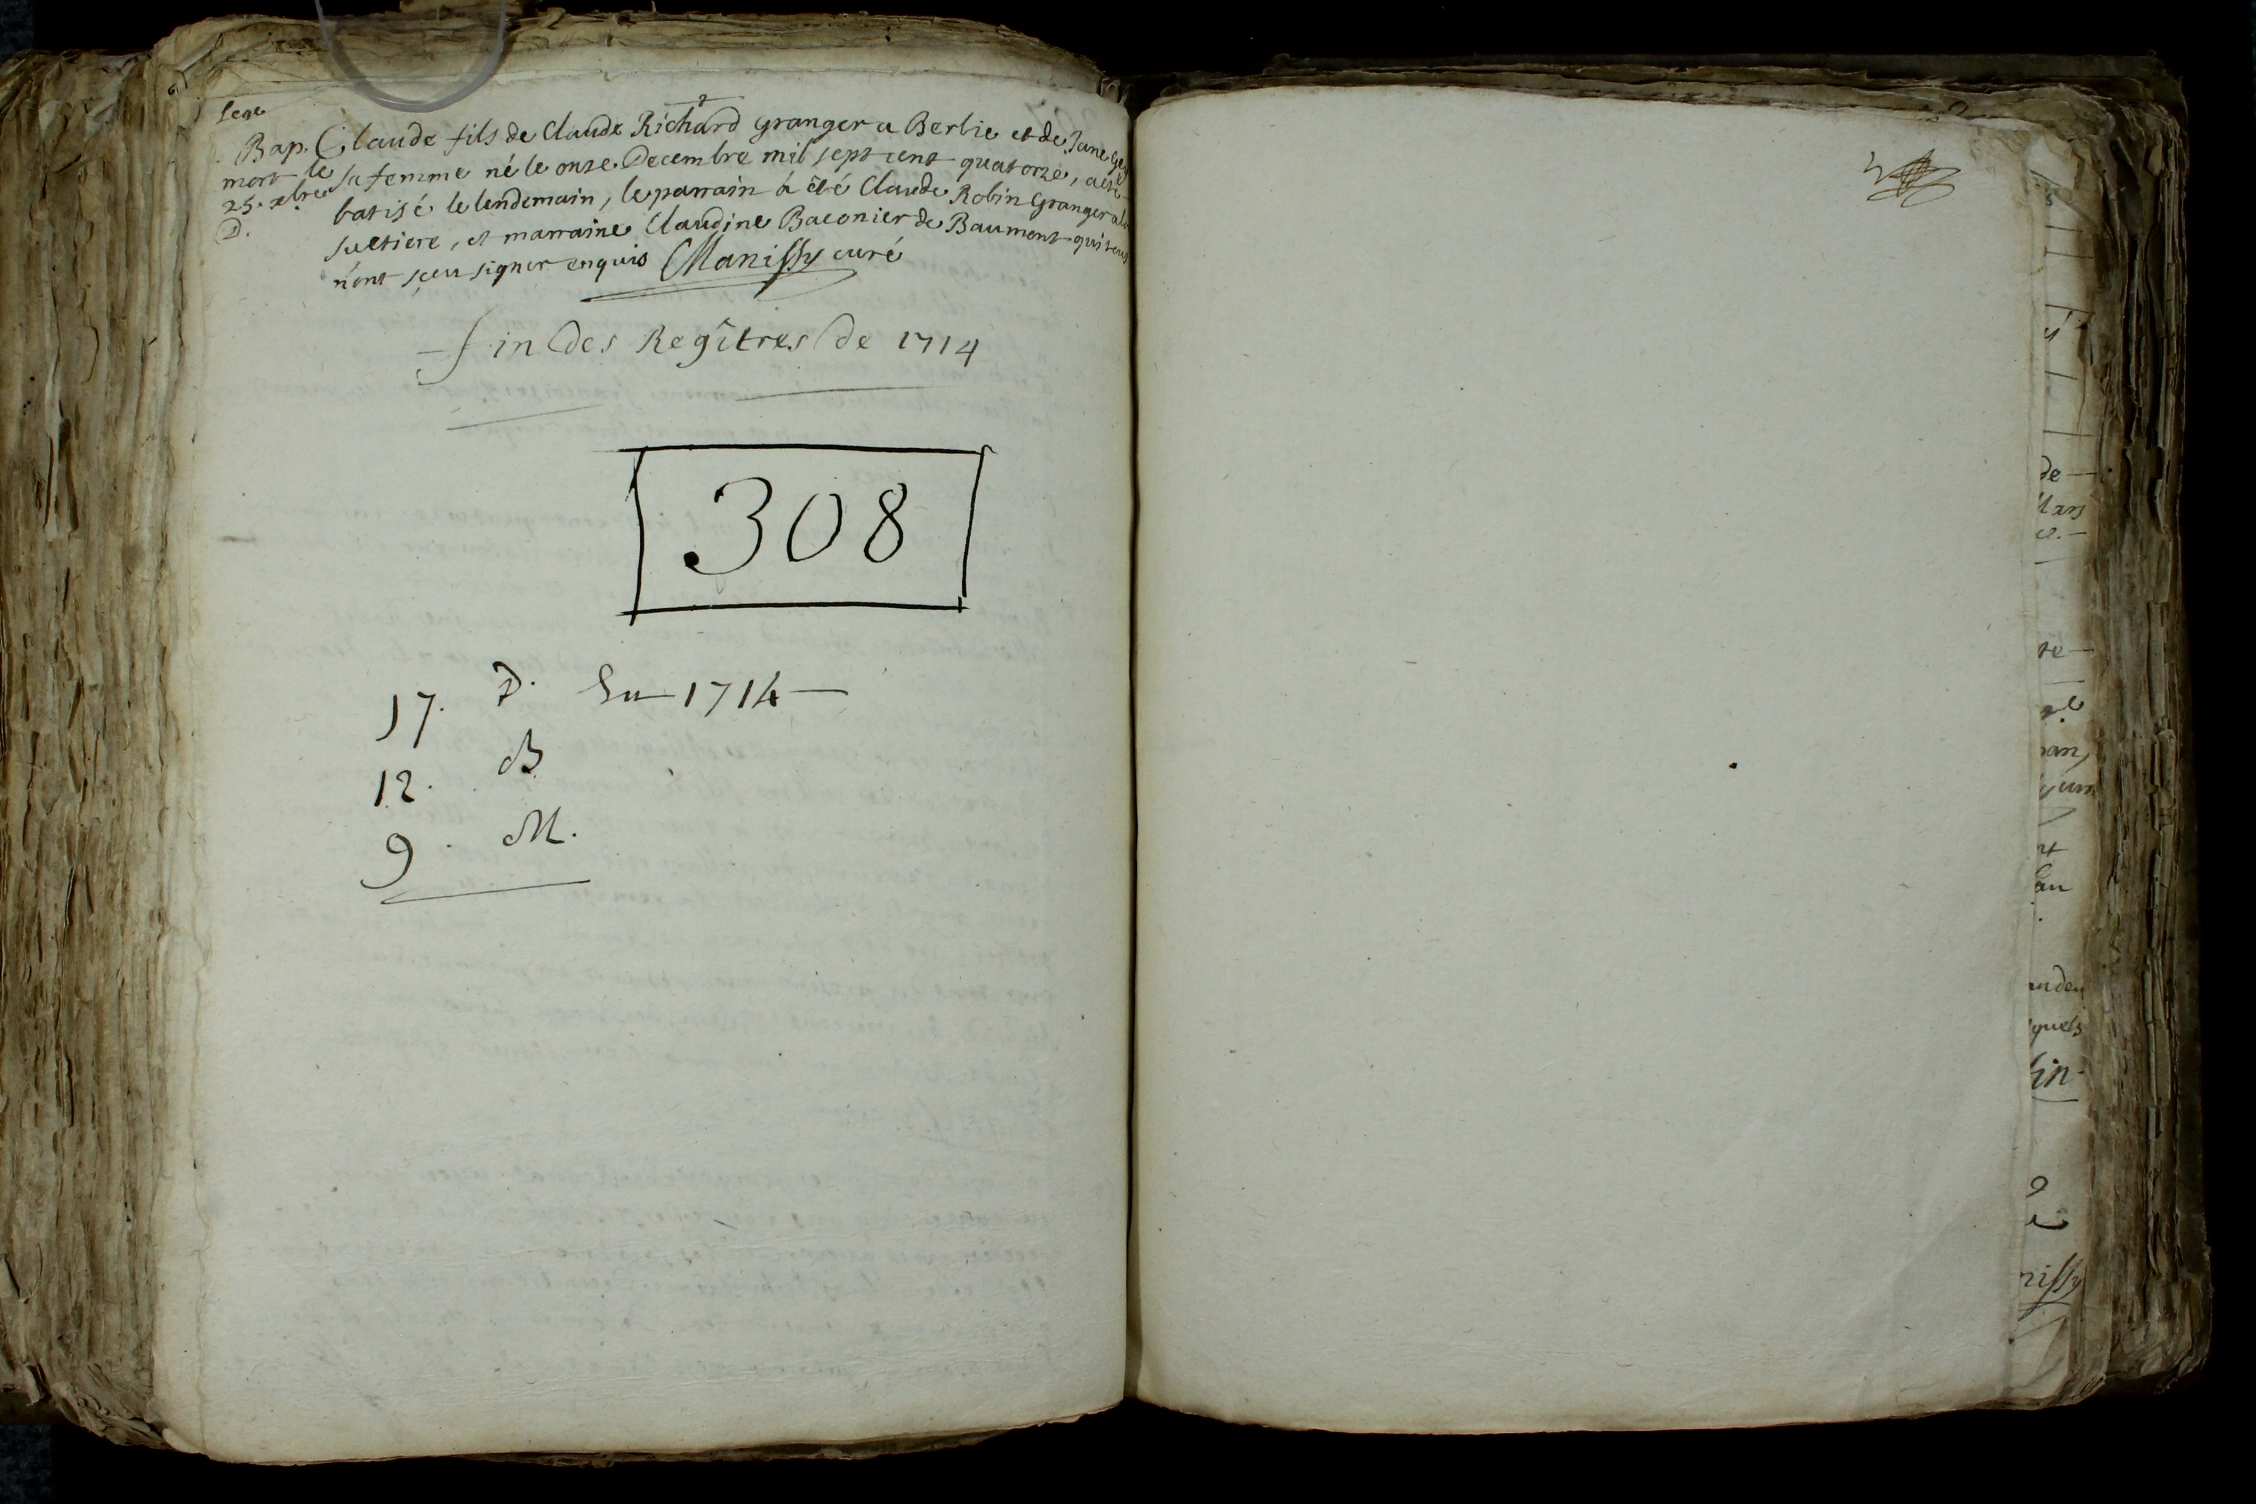 Bap. Claude fils de Claude Richard granger a Berlie et de Jane
mort le sa femme né le onze Decembre mil sept cent quatorze, a eté
25. xbre batisé le lendemain, le parrain à êté Claude Robin Granger a la
D. suetiere, et marraine Claudine Baconier de Baumont qui tous
n'ont sçeu signer enquis Manissy curé
fin des Regîtres de 1714
308
17. D. En 1714
12. B
9. M.
de
Mars
re
an
quels
lin
nissy